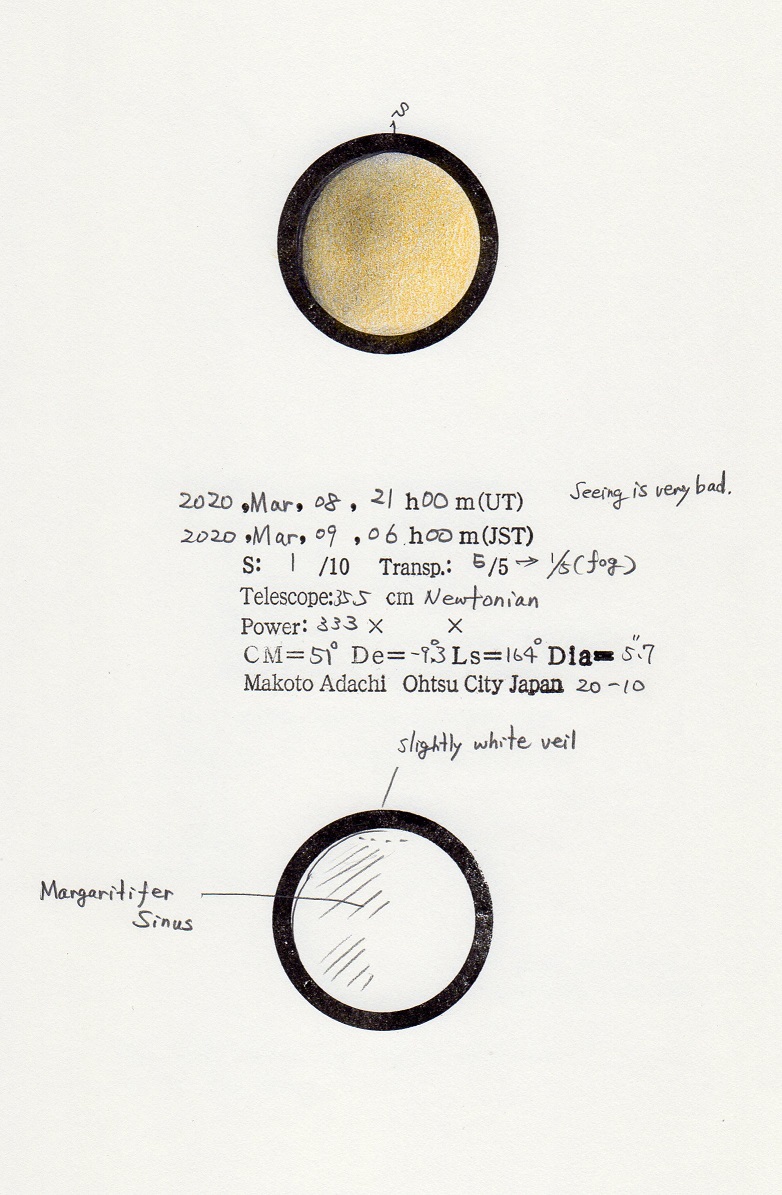 S
2020, Mar, 08, 21 h00 m(UT)
Seeing is very bad.
2020, Mar, 09, 06 h00 m(JST)
S: 1 /10 Transp.: 5/5 → 1/5 (fog)
Telescope: 35.5 cm Newtonian
Power: 333 × ×
CM=51° De=-9.3° Ls=164° Dia= 5".7
Makoto Adachi Ohtsu City Japan 20-10
slightly white veil
Margaritifer
Sinus